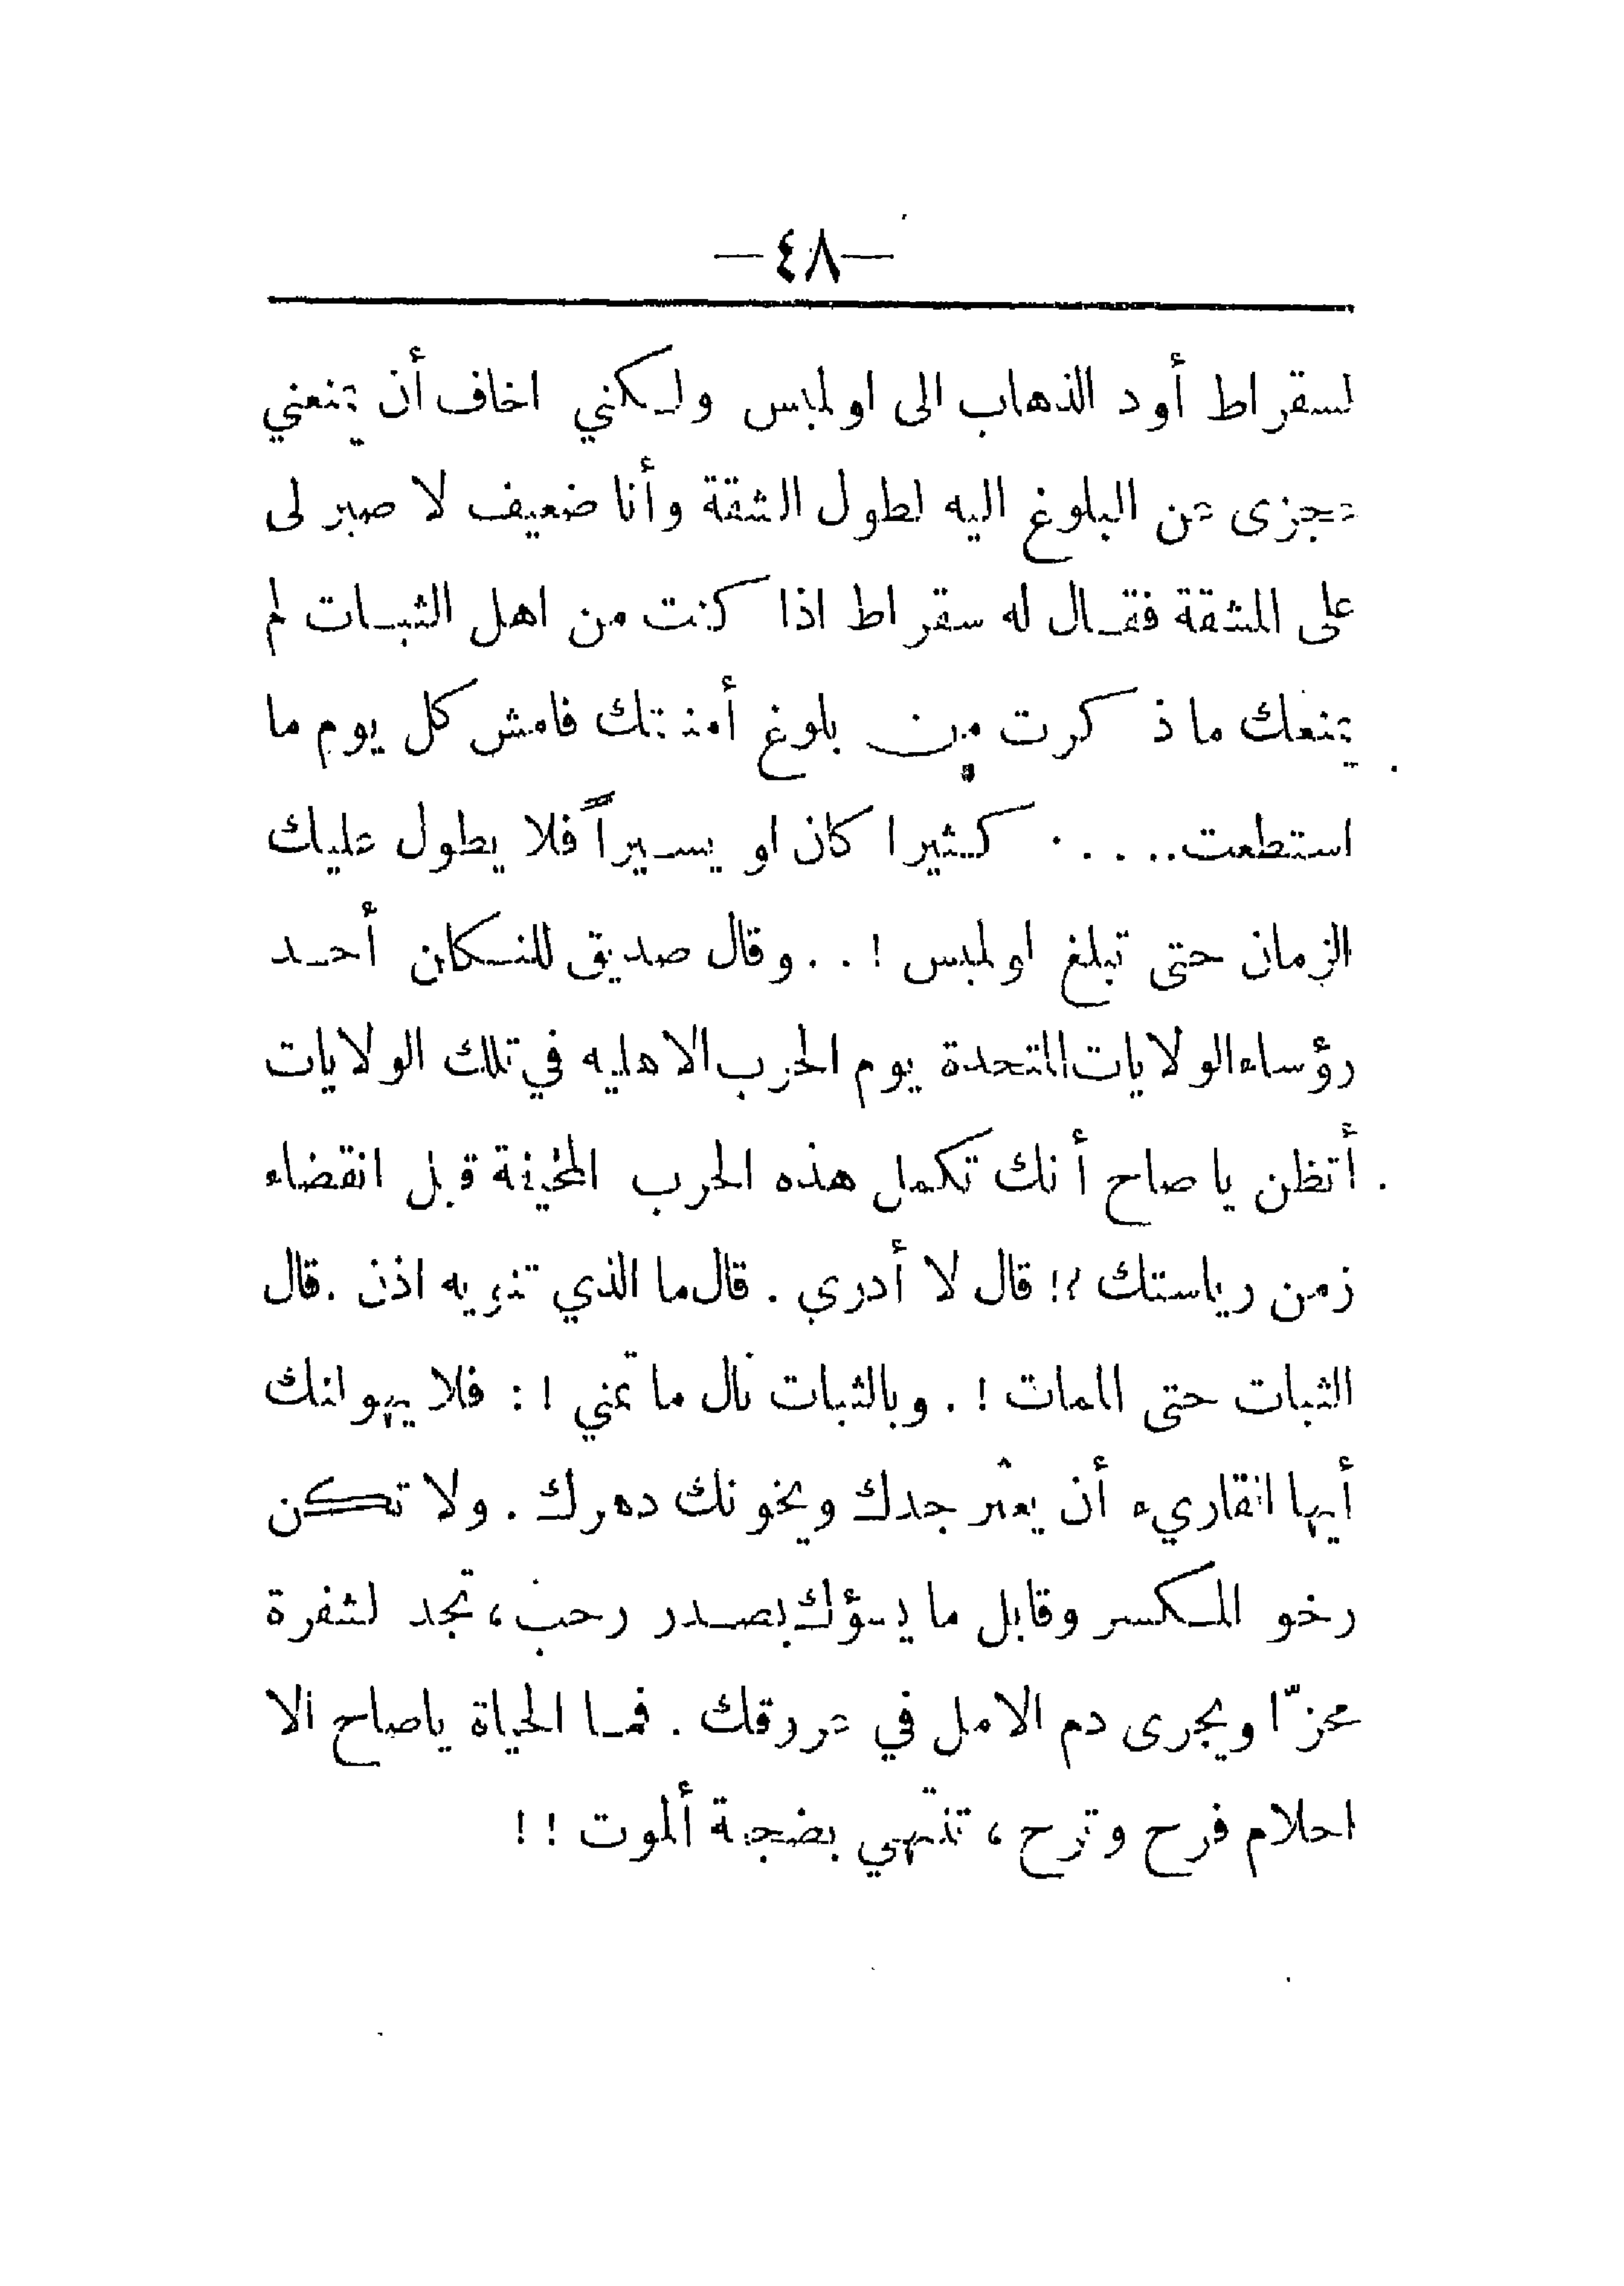 —٤٨—
لسقراط أود الذهاب الى اولمبس ولكني اخاف أن يمنعني
عجزى عن البلوغ اليه لطول الشقة وأنا ضعيف لا صبر لى
على المشقة فقال له سقراط اذا كنت من اهل الثبات لم
يمنعك ما ذكرت من بلوغ أمنيتك فامش كل يوم ما
استطعت..... كثيرا كان او يسيراً فلا يطول عليك
الزمان حتى تبلغ اولمبس ! . . وقال صديق للنكلن أحد
رؤساء الولايات المتحدة يوم الحرب الاهليه في تلك الولايات
أتظن يا صاح أنك تكمل هذه الحرب المخيفة قبل انقضاء
زمن رياستك ؟! قال لا أدري . قال ما الذي تنويه اذن . قال
الثبات حتى الممات ! . وبالثبات نال ما تمنى ! : فلا يهولنك
أيها القاريء أن يعثر جدك ويخونك دهرك . ولا تكن
رخو المكسر وقابل ما يسؤك بصدر رحب ، تجد لشفرة
محزّا ويجرى دم الامل في عروقك . فما الحياة ياصاح الا
احلام فرح وترح ، تنتهي بضجعة ألموت ! !